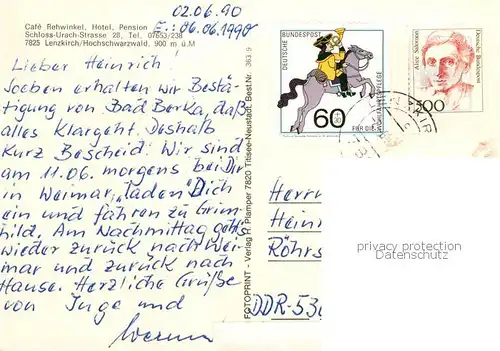 02.06.90
Café Rehwinkel, Hotel, Pension
Schloss-Urach-Strasse 28, Tel. 07653/238
7825 Lenzkirch/Hochschwarzwald, 900 m ü.M
E.: 06.06.1990
Lieber Heinrich!
Soeben erhalten wir Bestä-
tigung von Bad Berka, daß
alles klargeht. Deshalb
kurz Bescheid: Wir sind
am 11.06. morgens bei Dir
in Weimar, "laden" Dich
ein und fahren zu Grim-
hild. Am Nachmittag geht's
wieder zurück nach Wei-
mar und zurück nach
Hause. Herzliche Grüße
von Inge und
Werner
FOTOPRINT - Verlag H. Plamper 7820 Titisee-Neustadt, Best.Nr. 363 9
DEUTSCHE BUNDESPOST
60
+30
FÜR DIE WOHLFAHRTSPFLEGE
Alice Salomon
Deutsche Bundespost
100
Herrn
Hein
Röhrs
DDR-530
privacy protection
Datenschutz